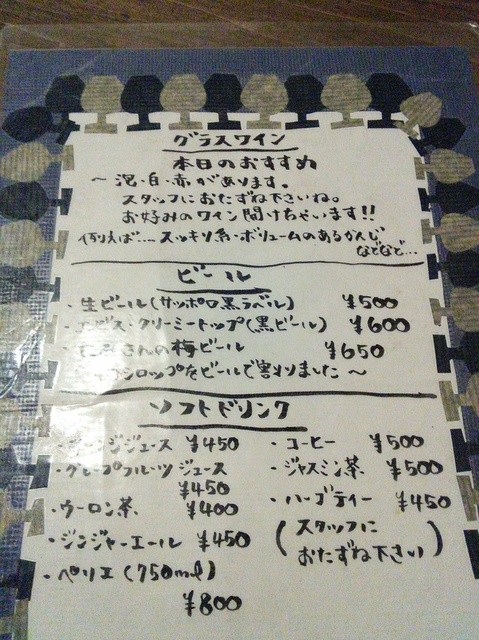 グラスワイン
本日のおすすめ
〜泡・白・赤があります。
スタッフにおたずね下さいね。
お好みのワイン開けちゃいます!!
例えば…. スッキリ系・ボリュームのあるかんじ
などなど…
ビール
・生ビール(サッポロ黒ラベル) ¥500
・エビス・クリーミートップ(黒ビール) ¥600
さんの梅ビール ¥650
シロップをビールで割りました〜
ソフトドリンク
ジュース ¥450
・グレープフルーツジュース
¥450
・ウーロン茶 ¥400
・ジンジャーエール ¥450
・ペリエ(750ml)
¥800
・コーヒー ¥500
・ジャスミン茶 ¥500
・ハーブティー ¥450
(スタッフに
おたずね下さい)